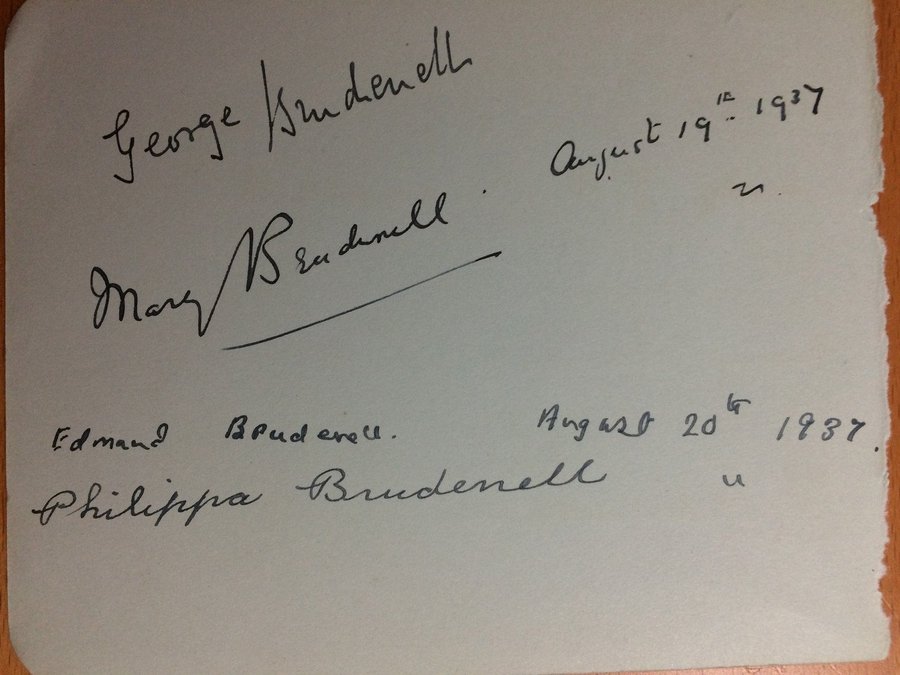 George Brudenell August 19th 1937
Mary Brudenell. "
Edmund Brudenell. August 20th 1937.
Philippa Brudenell "